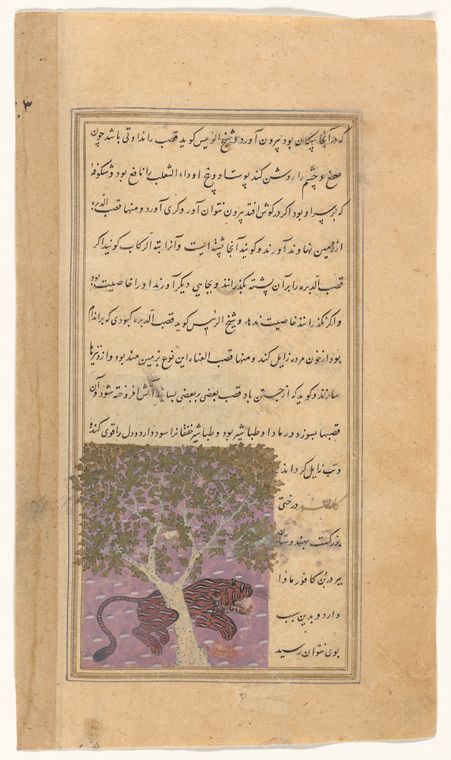 که در آنجا پیکان بود بیرون آورد و شیخ الرئیس کوید قصب را نداوتی باشد چون
صمغ و چشم را روشن کند پوست او و بیخ او داء الثعلب را نافع بود و شکوفهٔ
که بر سر او بود اکر در کوش افتد بیرون نتوان آورد و کری آورد و منها قصب الدریره
از زمین نهاوند آورند و کویند آنجا پشته ایست و آنرا کویند اکر
قصب الدریره را بر آن پشته بکذرانند و بجایی دیکر آورند او را خاصیت بود
و اکر نکذرانند خاصیت ندهد و شیخ الرئیس کوید قصب الدریره کبودی که بر اندام
بود از خون مرده زایل کند و منها قصب القناء این نوع بزمین هند بود و از و نیزها
سازند و کوید که از جستن باد قصب بعضی بر بعضی بساید آتش افروخته شود و آن
قصبها بسوزد و رماد او طباشیر بود و طباشیر خفقانرا سود دارد و دل را قوی کند و
و تب زایل کرداند
درختی
بزرکست بهندوستان
ببر در بن کافور ماوا
دارد و بدین سبب
بوی نتوان رسید
۳